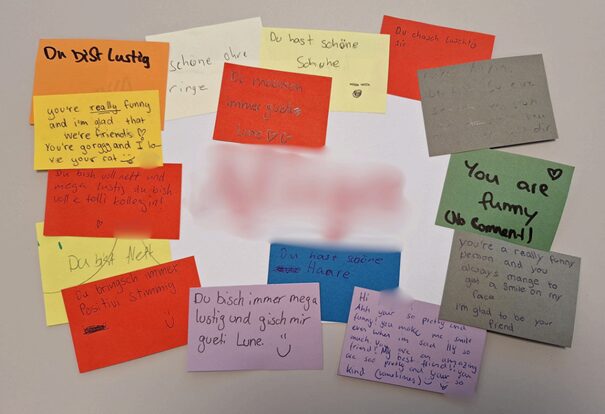 Du bist lustig
schöne ohre
ringe
Du hast schöne
Schuhe
immer
you're really funny
and i'm glad that
we're friends ♡
You're gorggg and I lo-
ve your cat
Du bish voll nett und
mega lustig du bish
voll e tolli kollegin!
You are
funny
(No Comment)
Du bist Nett
you're a really funny
person and you
always mange to
get a smile on my
face
i'm glad to be your
friend
Du bringsch immer
Positivi Stimmig
Du hast schöne
Haare
Du bisch immer mega
lustig und gisch mir
gueti Lune. :)
Hi
Ahh your so pretty and
funny! you make me smile
even when im sad. Ily so
much you are an amazing
friend! My best friend! you
are soo pretty and your so
kind (sometimes)